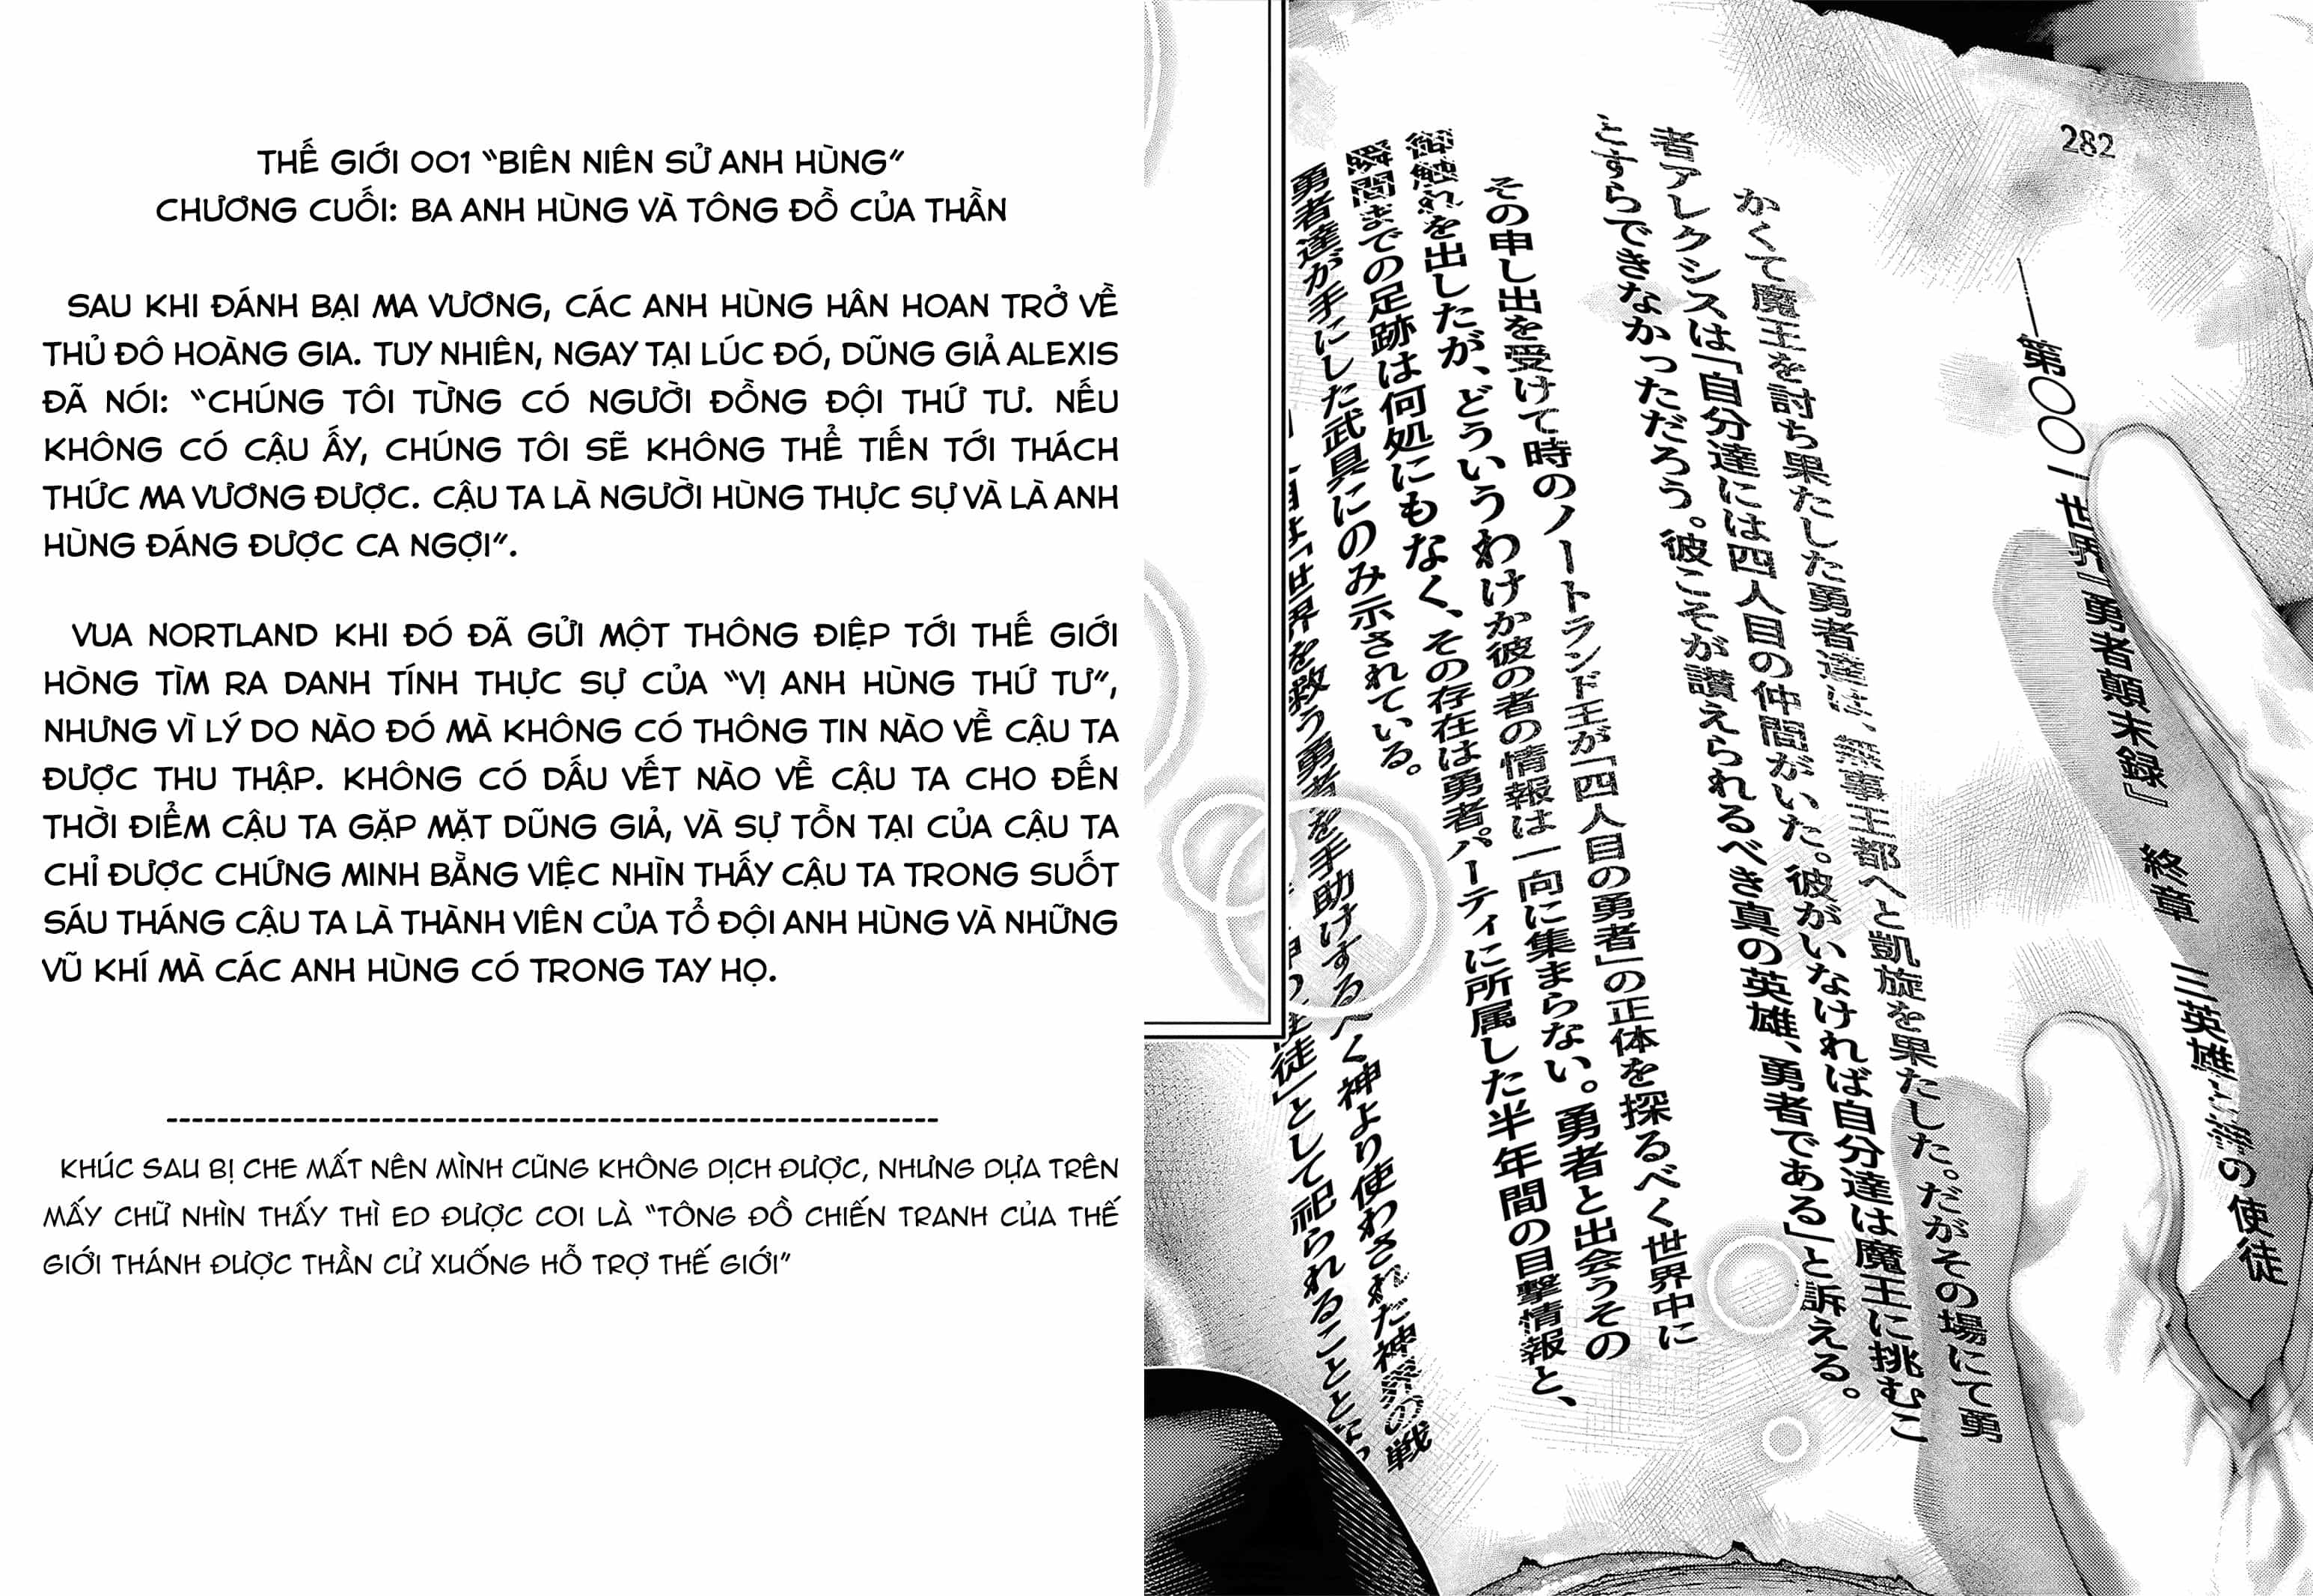 THẾ GIỚI 001 “BIÊN NIÊN SỬ ANH HÙNG”
CHƯƠNG CUỐI: BA ANH HÙNG VÀ TÔNG ĐỒ CỦA THẦN
SAU KHI ĐÁNH BẠI MA VƯƠNG, CÁC ANH HÙNG HÂN HOAN TRỞ VỀ
THỦ ĐÔ HOÀNG GIA. TUY NHIÊN, NGAY TẠI LÚC ĐÓ, DŨNG GIẢ ALEXIS
ĐÃ NÓI: “CHÚNG TÔI TỪNG CÓ NGƯỜI ĐỒNG ĐỘI THỨ TƯ. NẾU
KHÔNG CÓ CẬU ẤY, CHÚNG TÔI SẼ KHÔNG THỂ TIẾN TỚI THÁCH
THỨC MA VƯƠNG ĐƯỢC. CẬU TA LÀ NGƯỜI HÙNG THỰC SỰ VÀ LÀ ANH
HÙNG ĐÁNG ĐƯỢC CA NGỢI”.
VUA NORTLAND KHI ĐÓ ĐÃ GỬI MỘT THÔNG ĐIỆP TỚI THẾ GIỚI
HÒNG TÌM RA DANH TÍNH THỰC SỰ CỦA “VỊ ANH HÙNG THỨ TƯ”,
NHƯNG VÌ LÝ DO NÀO ĐÓ MÀ KHÔNG CÓ THÔNG TIN NÀO VỀ CẬU TA
ĐƯỢC THU THẬP. KHÔNG CÓ DẤU VẾT NÀO VỀ CẬU TA CHO ĐẾN
THỜI ĐIỂM CẬU TA GẶP MẶT DŨNG GIẢ, VÀ SỰ TỒN TẠI CỦA CẬU TA
CHỈ ĐƯỢC CHỨNG MINH BẰNG VIỆC NHÌN THẤY CẬU TA TRONG SUỐT
SÁU THÁNG CẬU TA LÀ THÀNH VIÊN CỦA TỔ ĐỘI ANH HÙNG VÀ NHỮNG
VŨ KHÍ MÀ CÁC ANH HÙNG CÓ TRONG TAY HỌ.
KHÚC SAU BỊ CHE MẤT NÊN MÌNH CŨNG KHÔNG DỊCH ĐƯỢC, NHƯNG DỰA TRÊN
MẤY CHỮ NHÌN THẤY THÌ ED ĐƯỢC COI LÀ “TÔNG ĐỒ CHIẾN TRANH CỦA THẾ
GIỚI THÁNH ĐƯỢC THẦN CỬ XUỐNG HỖ TRỢ THẾ GIỚI”
282
――第〇〇一世界『勇者顛末録』 終章 三英雄と神の使徒
かくて魔王を討ち果たした勇者達は、無事王都へと凱旋を果たした。だがその場にて勇
者アレクシスは「自分達には四人目の仲間がいた。彼がいなければ自分達は魔王に挑むこ
とすらできなかっただろう。彼こそが讃えられるべき真の英雄、勇者である」と訴える。
その申し出を受けて時のノートランド王が「四人目の勇者」の正体を探るべく世界中に
御触れを出したが、どういうわけか彼の者の情報は一向に集まらない。勇者と出会うその
瞬間までの足跡は何処にもなく、その存在は勇者パーティに所属した半年間の目撃情報と、
勇者達が手にした武具にのみ示されている。
「世界を救う勇者を手助けするべく神より使わされた神界の戦
徒」として祀られることとなっ